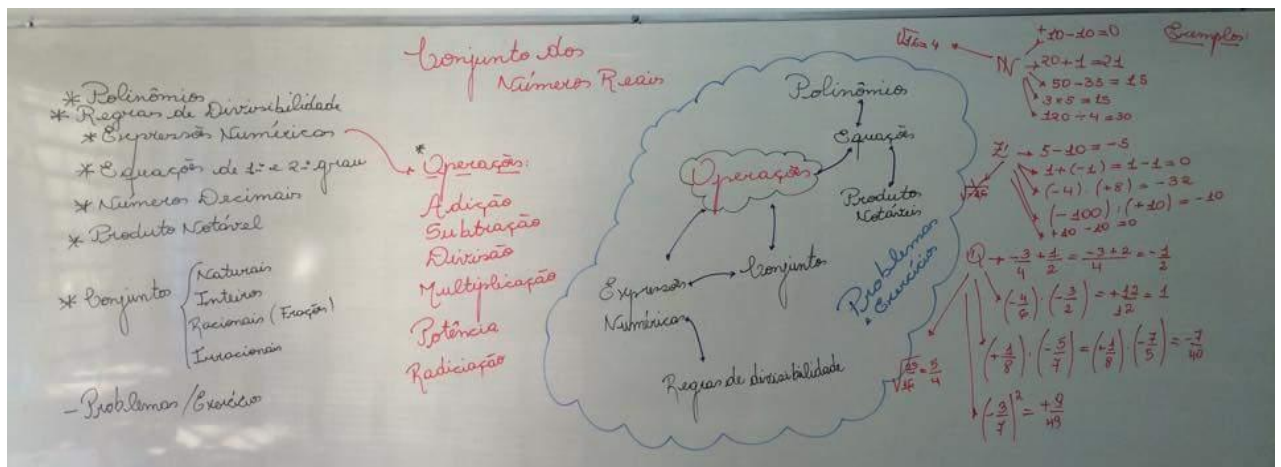 Conjunto dos
Números Reais
* Polinômios
* Regras de Divisibilidade
* Expressões Numéricas
* Equações de 1º e 2º grau
* Números Decimais
* Produto Notável
* Conjuntos
Naturais
Inteiros
Racionais (Frações)
Irracionais
- Problemas/Exercícios
* Operações:
Adição
Subtração
Divisão
Multiplicação
Potência
Radiciação
Polinômios
Equações
Operações
Produtos
Notáveis
Conjuntos
Expressões
Numéricas
Regras de divisibilidade
Problemas
Exercícios
Exemplos:
√16=4
N
+10-10=0
20+1=21
50-35=15
3×5=15
120÷4=30
Z
5-10=-5
1+(-1)=1-1=0
(-4).(+8)=-32
(-100):(+10)=-10
+10-10=0
Q
-3/4+1/2=-3+2/4=-1/2
.(-3/2)=+12/12=1
(+1/8):(-5/7)=(+1/8).(-7/5)=-7/40
(-3/7)²=+9/49
√25/16=5/4